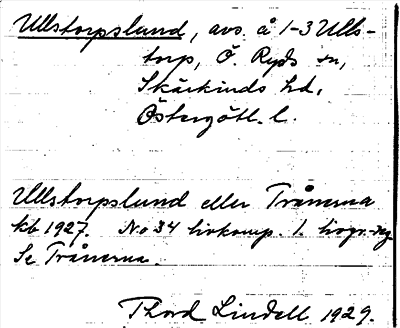 Ullstorpslund, avs. å 1-3 Ulls-
torp, Ö. Ryds sn,
Skärkinds hd,
Östergötl. l.
Ullstorpslund eller Trånerna
kb 1927. No 34 livkomp. 1. livgr.reg
Se Trånerna.
Thord Lindell 1929.